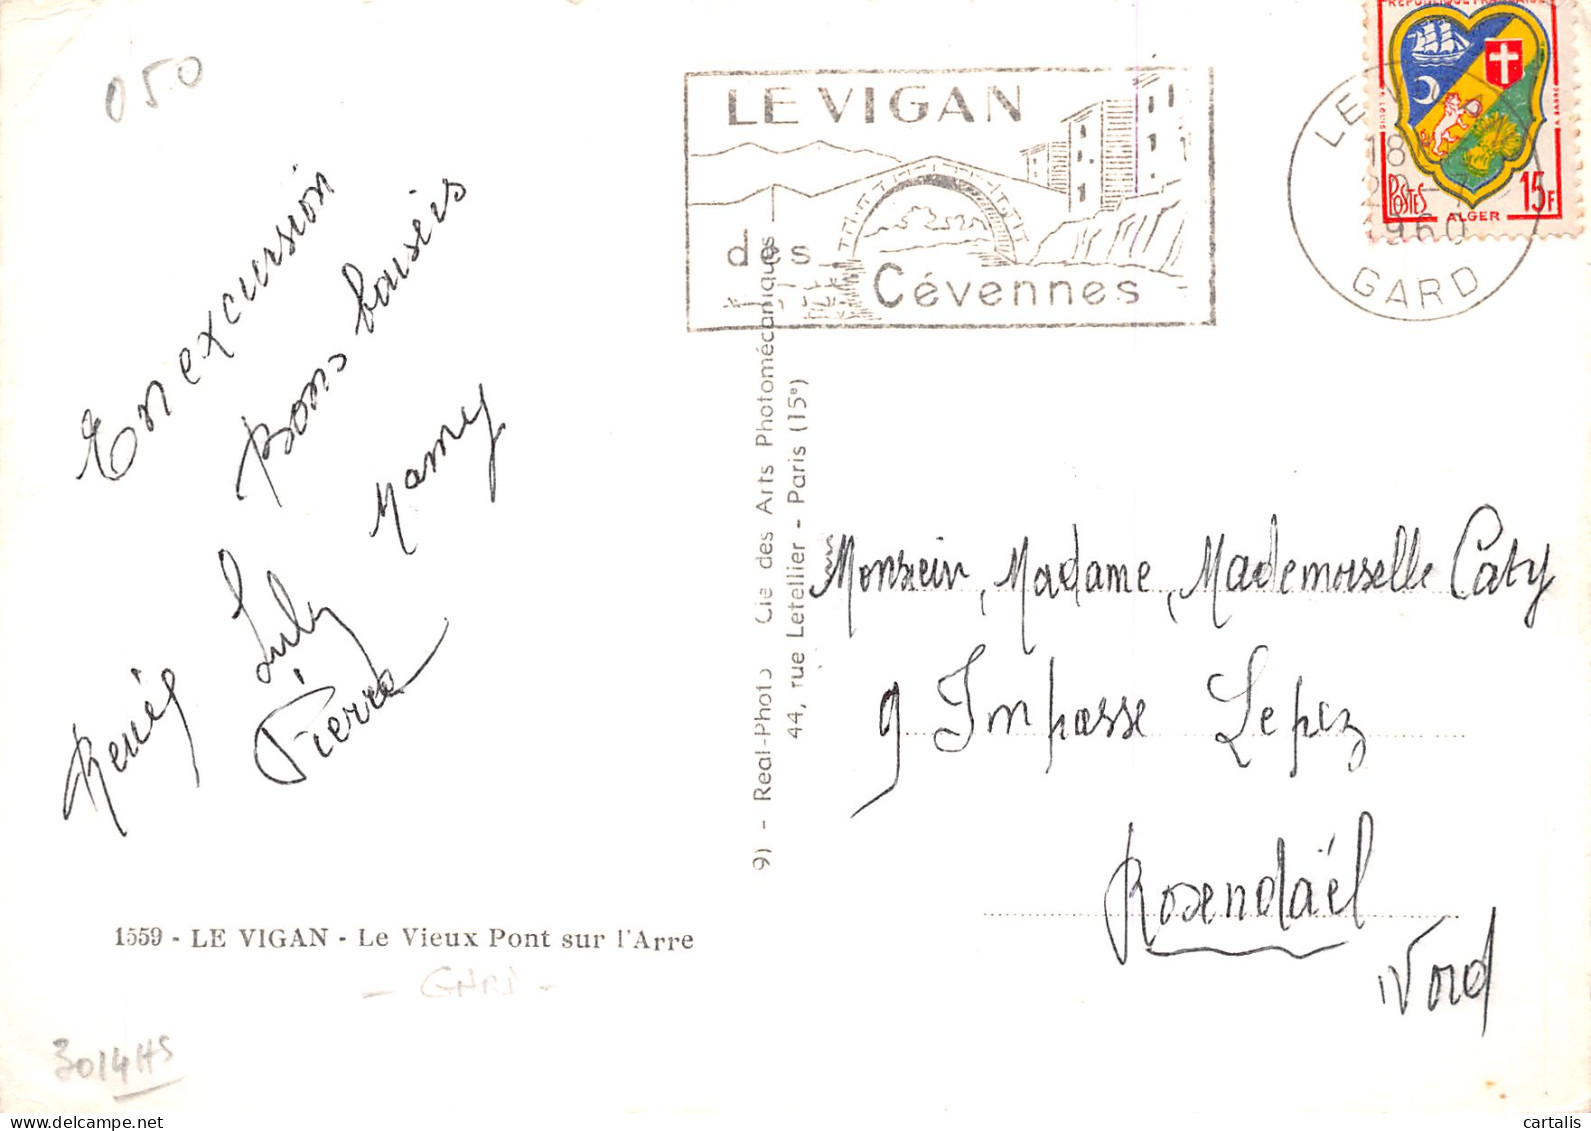 050
En excursion
Bons baisers
Mamy
Renée
Lily
Pierre
1559 - LE VIGAN - Le Vieux Pont sur l'Arre
- GARD -
3014HS
9) - Real-Photo Cie des Arts Photomécaniques
44, rue Letellier - Paris (15e)
LE VIGAN
des
Cévennes
REPUBLIQUE FRANÇAISE
POSTES
ALGER
15F
LE
18
1960
GARD
Monsieur, Madame, Mademoiselle Caty
9 Impasse Lepez
Rosendaël
Nord
cartalis